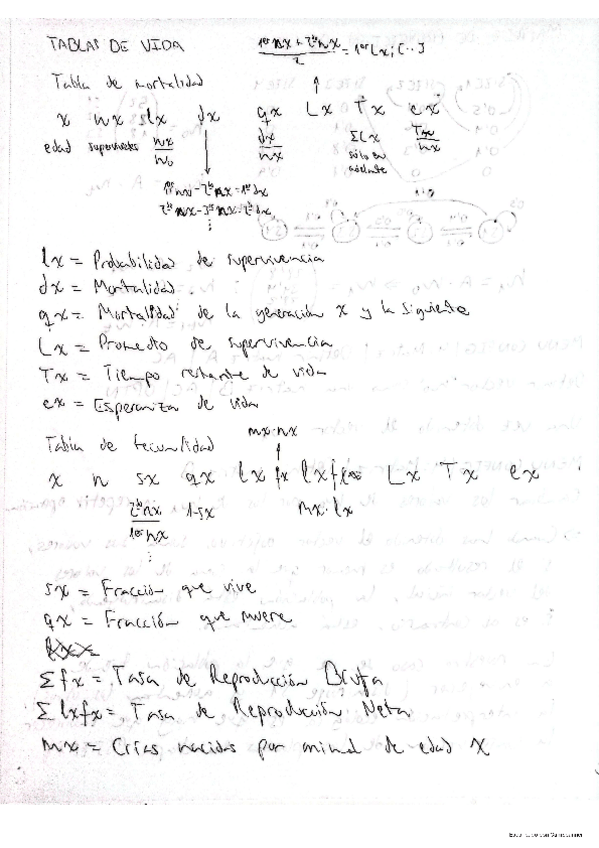 TABLAS DE VIDA
1er nx + 2do nx / 2 = 1er Lx; [...]
Tabla de mortalidad
x nx slx dx qx Lx Tx ex
edad supervivientes nx/n0 dx/nx ΣLx sólo en adelante Tx/nx
1er nx - 2do nx = 1er dx
2do nx - 3er nx = 2do dx
⋮
lx = Probabilidad de supervivencia
dx = Mortalidad.
qx = Mortalidad de la generación x y la siguiente
Lx = Promedio de supervivencia
Tx = Tiempo restante de vida
ex = Esperanza de vida
mx·nx
Tabla de fecundidad
x n sx qx lx fx lxfx Lx Tx ex
2do nx / 1er nx 1-sx mx·lx
⋮
sx = Fracción que vive
qx = Fracción que muere
Σfx = Tasa de Reproducción Bruta
Σlxfx = Tasa de Reproducción Neta
mx = Crías nacidas por animal de edad X